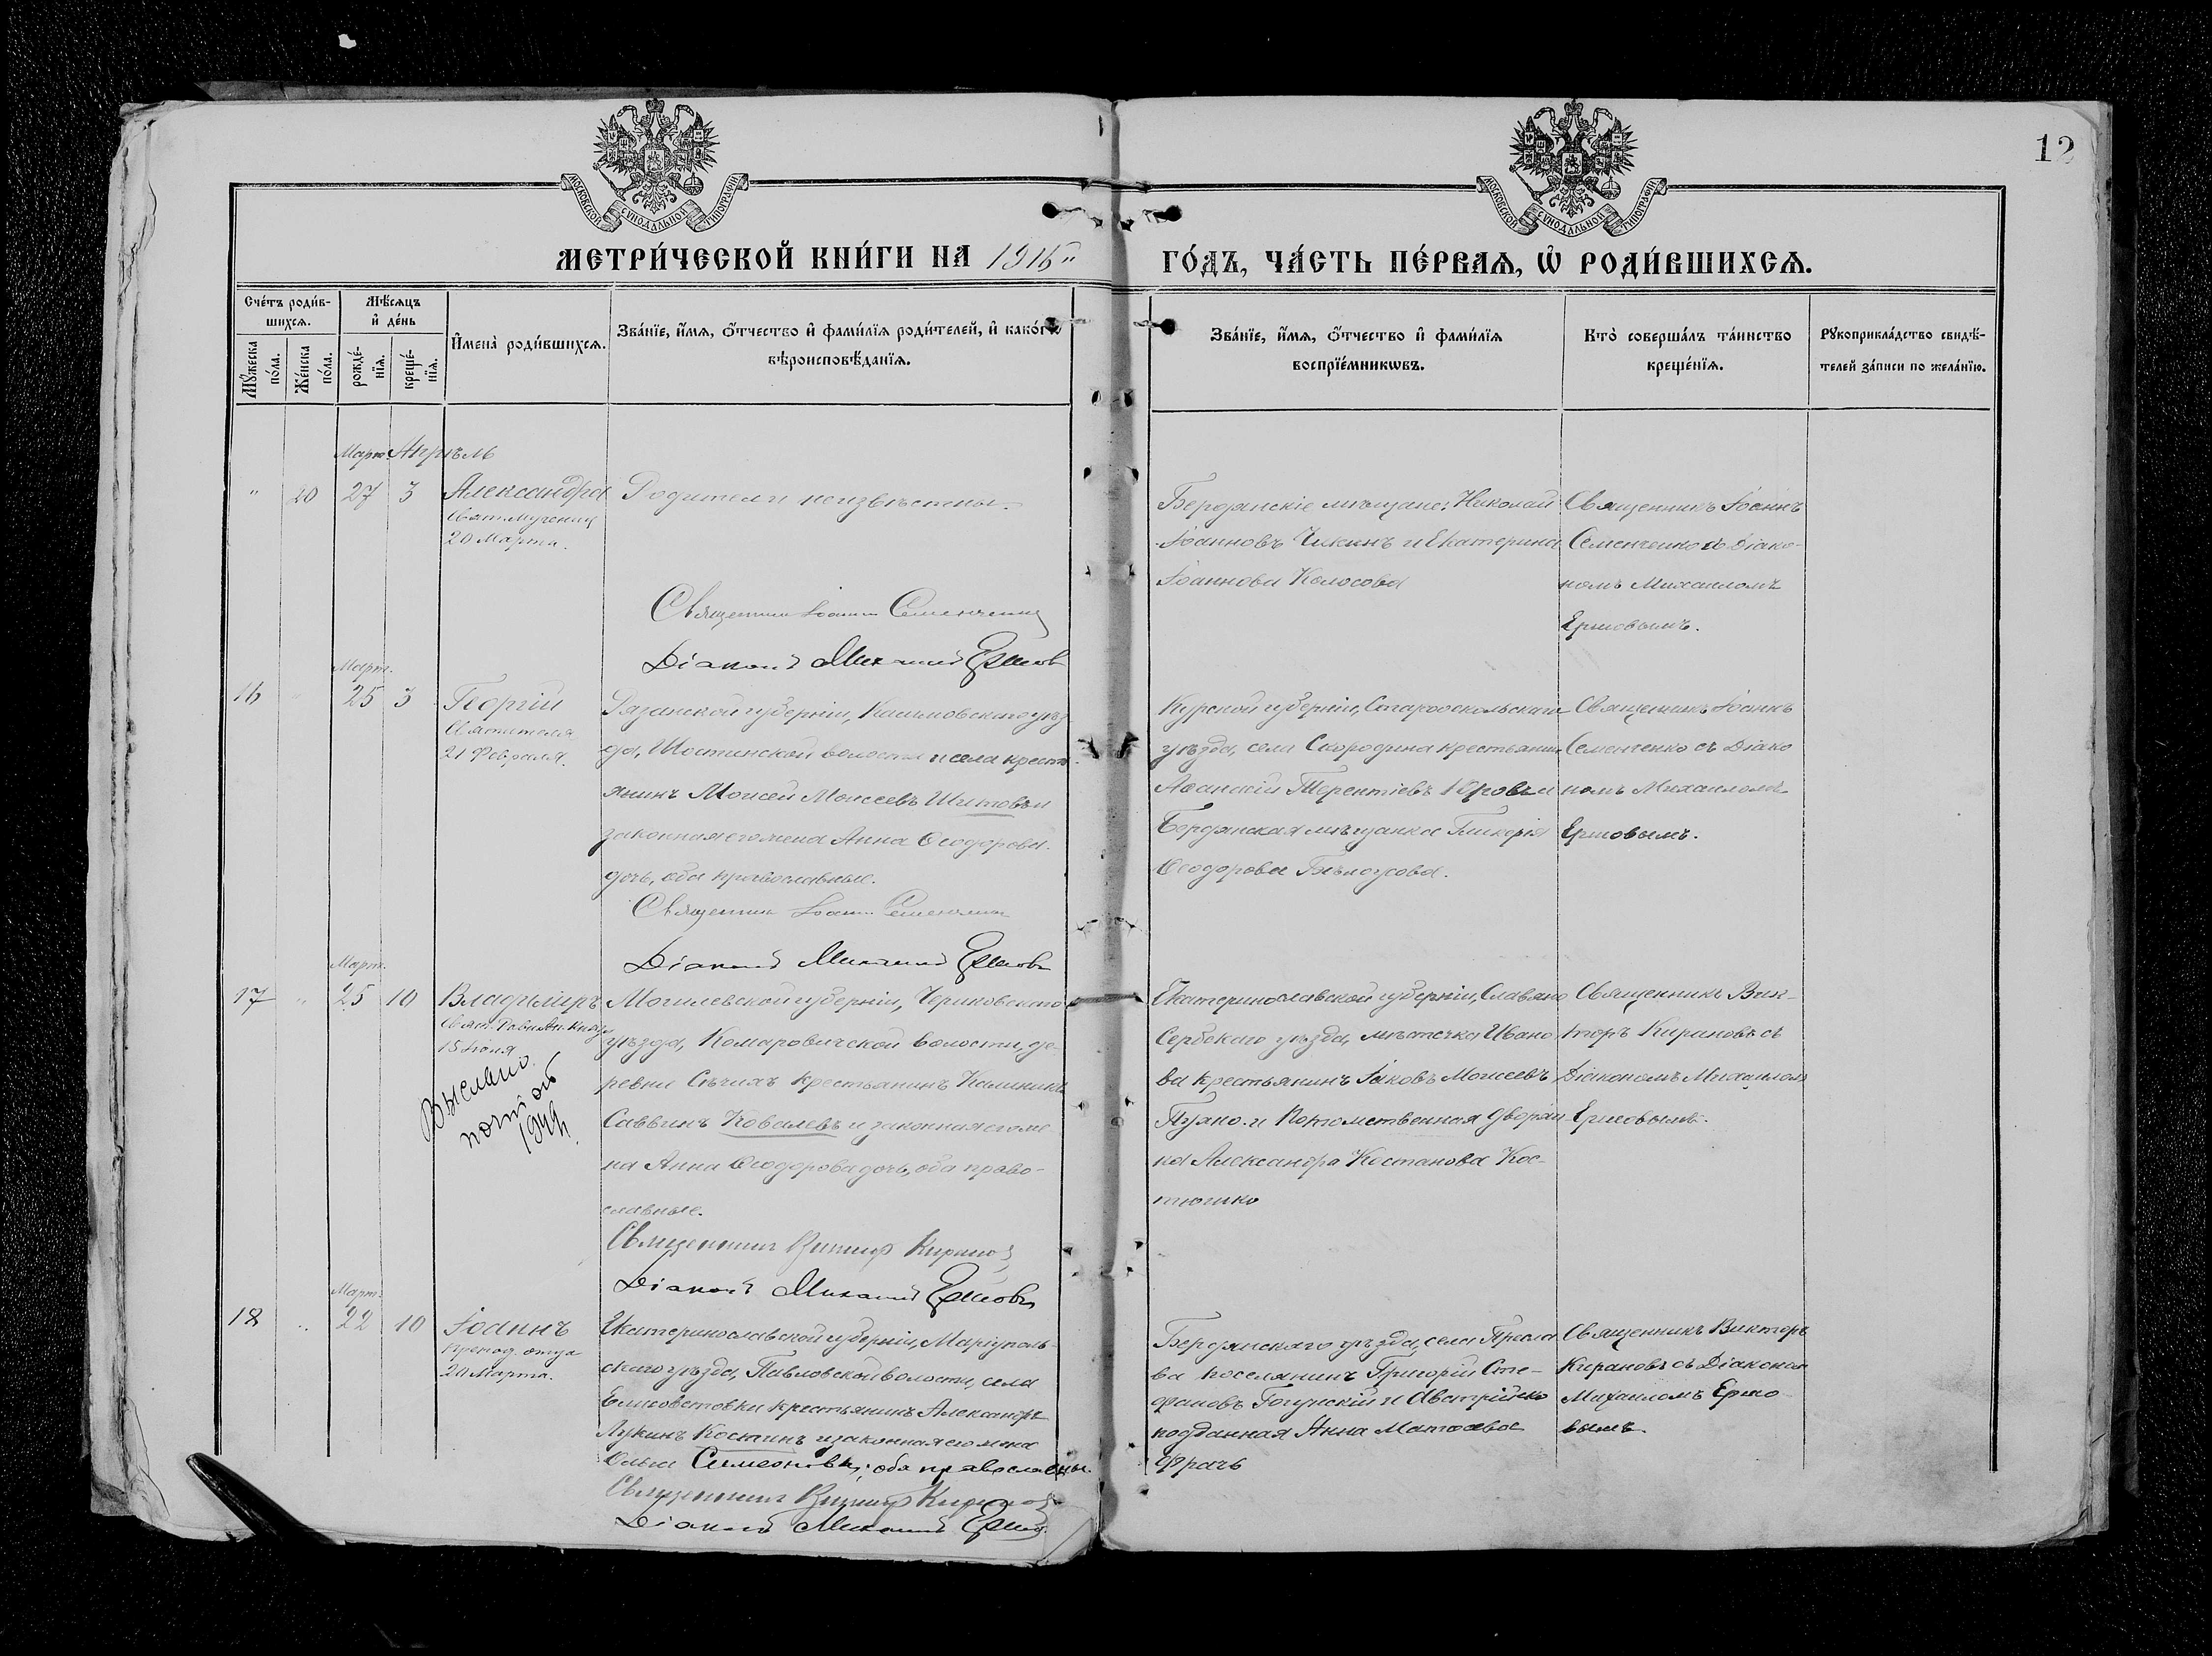 12
МОСКОВСКОЙ СУНОДАЛЬНОЙ ТИПОГРАФІИ
МОСКОВСКОЙ СУНОДАЛЬНОЙ ТИПОГРАФІИ
МЕТРИ́ЧЕСКОЙ КНИ́ГИ НА 1916
ГО́ДЪ, ЧА́СТЬ ПЕ́РВАЯ, Ѽ РОДИ́ВШИХСѦ.
Сче́тъ роди́в-
шихсѧ.
Мѣ́сяцъ
и де́нь
Мꙋ́жеска по́ла.
Же́нска по́ла.
рожде́-
нїѧ.
креще́-
нїѧ.
Имена̀ роди́вшихсѧ.
Зва́нїе, и́мѧ, ѻ́тчество и фами́лїѧ роди́телей, и како́гѡ
вѣроисповѣ́данїѧ.
Зва́нїе, и́мѧ, ѻ́тчество и фами́лїѧ
воспрїе́мникѡвъ.
Кто̀ соверша́лъ та́инство
креще́нїѧ.
Рꙋкоприкла́дство свидѣ́-
телей за́писи по жела́нїю.
Март. Апрѣль
" 20 27 3 Александра
Свят. Мучениц
20 Марта.
Родители неизвѣстны.
Священник Іоанн Семенченко
Діаконъ Михаилъ Ершовъ
Бердянскіе мѣщане: Николай
Іоанновъ Чикинъ и Екатерина
Іоаннова Колосова
Священникъ Іоаннъ
Семенченко съ Діако-
номъ Михаиломъ
Ершовымъ.
Март.
16 " 25 3 Георгій
Святителя
21 Февраля.
Рязанской губерніи, Касимовскаго уѣз
да, Шостинской волости и села крест
янинъ Моисей Моисеевъ Шитовъ и
законная его жена Анна Ѳеодорова
дочь, оба православные.
Священник Іоанн Семенченко
Діаконъ Михаилъ Ершовъ
Курской губерніи, Старооскольскаго
уѣзда, села Скородина крестьянин
Аѳанасій Терентіевъ Юровъ и
Бердянская мѣщанка Гликерія
Ѳеодорова Бѣлоусова.
Священникъ Іоаннъ
Семенченко съ Діако
номъ Михаиломъ
Ершовымъ.
Март.
17 " 25 10 Владиміръ
Свят. Равноап. Князя
15 Іюля
Выслано
почтой
1944
Могилевской губерніи, Чериковскаго
уѣзда, Комаровичской волости, де-
ревни крестьянинъ Калиникъ
Саввинъ Ковалевъ и законная его же
на Анна Ѳеодорова дочь, оба право-
славные.
Священник Виктор Киранов
Діаконъ Михаилъ Ершовъ
Екатеринославской губерніи, Славяно
Сербскаго уѣзда, мѣстечка Ивано
ва крестьянинъ Іаковъ Моисеевъ
и Потомственная дворян
ка Александра Костанова Кос-
тюшко
Священникъ Вик-
торъ Кирановъ съ
Діакономъ Михаиломъ
Ершовымъ.
Март.
18 " 22 10 Іоаннъ
Препод. отца
29 Марта.
Екатеринославской губерніи, Маріуполь-
скаго уѣзда, Павловской волости, села
Елисоветовки крестьянинъ Александръ
Лукинъ Костинъ и законная его жена
Ольга Симеонова, оба православны.
Священник Виктор Киранов
Діаконъ Михаилъ Ершовъ
Бердянскаго уѣзда, села Пресла
ва поселянинъ Григорій Сте-
фановъ и Австрійско
подданная Анна Матѳеева
Священникъ Викторъ
Кирановъ съ Діаконом
Михаиломъ Ершо
вымъ.